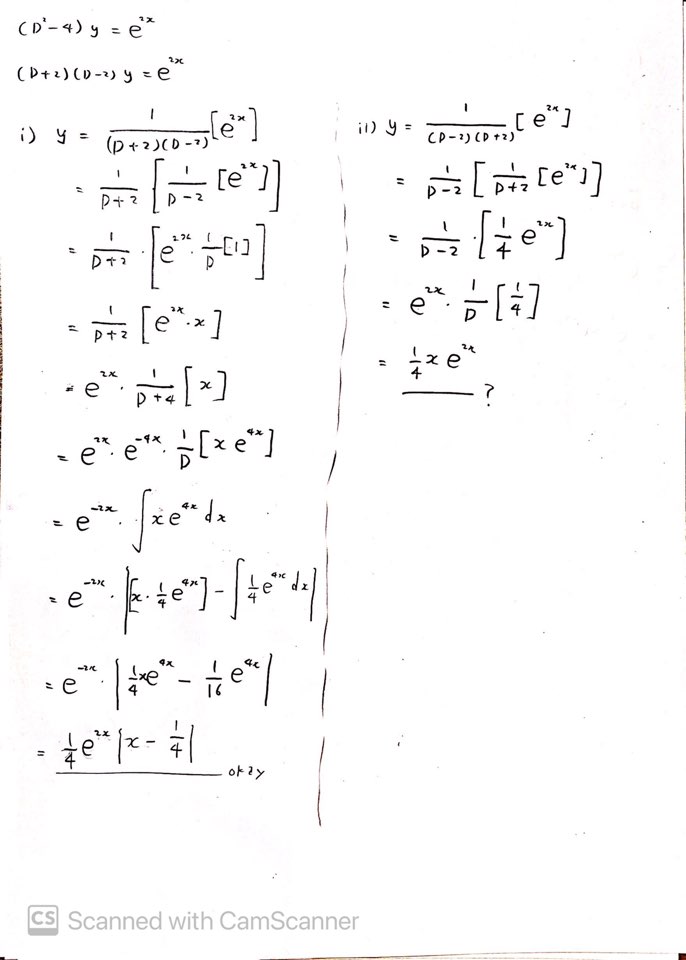 (D²-4) y = e^{2x}
(D+2)(D-2) y = e^{2x}
i) y = 1/((D+2)(D-2)) [e^{2x}]
= 1/(D+2) [1/(D-2) [e^{2x}]]
= 1/(D+2) · [e^{2x} · 1/D [1]]
= 1/(D+2) [e^{2x} · x]
= e^{2x} · 1/(D+4) [x]
= e^{2x} · e^{-4x} · 1/D [x e^{4x}]
= e^{-2x} · ∫ x e^{4x} dx
= e^{-2x} · |[x · 1/4 e^{4x}] - ∫ 1/4 e^{4x} dx|
= e^{-2x} · |1/4 x e^{4x} - 1/16 e^{4x}|
= 1/4 e^{2x} |x - 1/4|
okay
ii) y = 1/((D-2)(D+2)) [e^{2x}]
= 1/(D-2) [1/(D+2) [e^{2x}]]
= 1/(D-2) · [1/4 e^{2x}]
= e^{2x} · 1/D [1/4]
= 1/4 x e^{2x}
?
CS Scanned with CamScanner